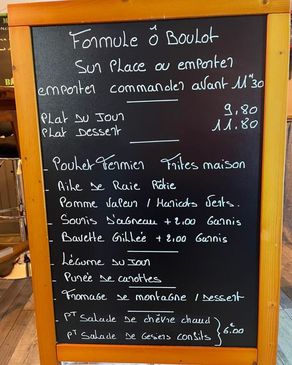 Formule Ô Boulot
Sur Place ou emporter
emporter commander avant 11h30
Plat du Jour 9,80
Plat Dessert 11.80
- Poulet Fermier Frites maison
- Aile de Raie Rôtie
Pomme Vapeur / Haricots Verts.
- Souris D'agneau + 2,00 Garnis
- Bavette Grillée + 2,00 Garnis
- Légume du Jour
- Purée de carottes
- Fromage de montagne / Dessert
- Pt Salade de chèvre chaud
Pt Salade de Gesiers Confits } 6€00